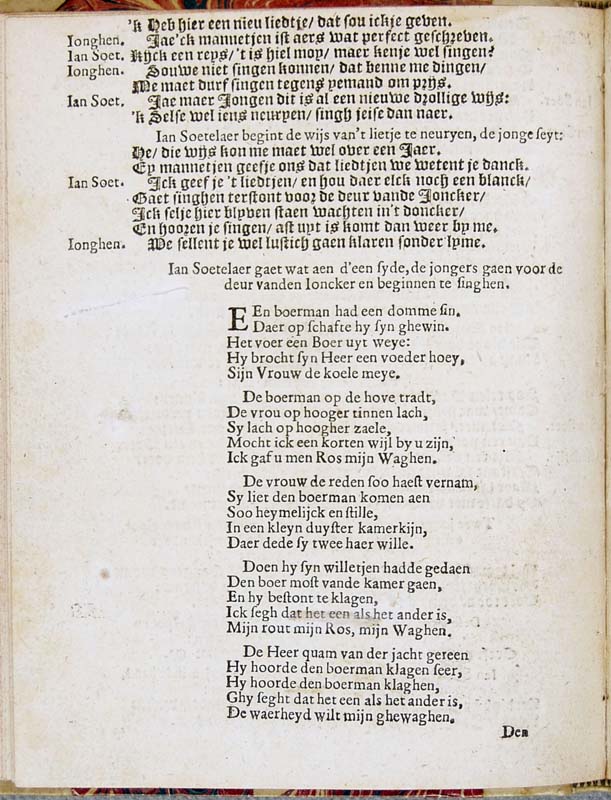 'k Heb hier een nieu liedtje/ dat sou ickje geven.
Ionghen. Jae'ck mannetjen ist aers wat perfect geschreven.
Ian Soet. Kijck een reys/ 't is hiel moy/ maer kenje wel singen?
Ionghen. Souwe niet singen konnen/ dat benne me dingen/
We maet durf singen tegens yemand om prijs.
Ian Soet. Jae maer Jongen dit is al een nieuwe drollige wijs:
'k Selfe wel iens neuryen/ singh jeise dan naer.
Ian Soetelaer begint de wijs van't lietje te neuryen, de jonge seyt:
He/ die wijs kon me maet wel over een Jaer.
Ey mannetjen geefje ons dat liedtjen we wetent je danck.
Ian Soet. Ick geef je 't liedtjen/ en hou daer elck noch een blanck/
Gaet singhen terstont voor de deur vande Joncker/
Ick selje hier blyven staen wachten in't doncker/
En hooren je singen/ ast uyt is komt dan weer by me.
Ionghen. We sellent je wel lustich gaen klaren sonder lyme.
Ian Soetelaer gaet wat aen d'een syde, de jongers gaen voor de
deur vanden Ioncker en beginnen te singhen.
EEn boerman had een domme sin.
Daer op schafte hy syn ghewin.
Het voer een Boer uyt weye:
Hy brocht syn Heer een voeder hoey,
Sijn Vrouw de koele meye.
De boerman op de hove tradt,
De vrou op hooger tinnen lach,
Sy lach op hoogher zaele,
Mocht ick een korten wijl by u zijn,
Ick gaf u men Ros mijn Waghen.
De vrouw de reden soo haest vernam,
Sy liet den boerman komen aen
Soo heymelijck en stille,
In een kleyn duyster kamerkijn,
Daer dede sy twee haer wille.
Doen hy syn willetjen hadde gedaen
Den boer most vande kamer gaen,
En hy bestont te klagen,
Ick segh dat het een als het ander is,
Mijn rout mijn Ros, mijn Waghen.
De Heer quam van der jacht gereen
Hy hoorde den boerman klagen seer,
Hy hoorde den boerman klaghen,
Ghy seght dat het een als het ander is,
De waerheyd wilt mijn ghewaghen.
Den